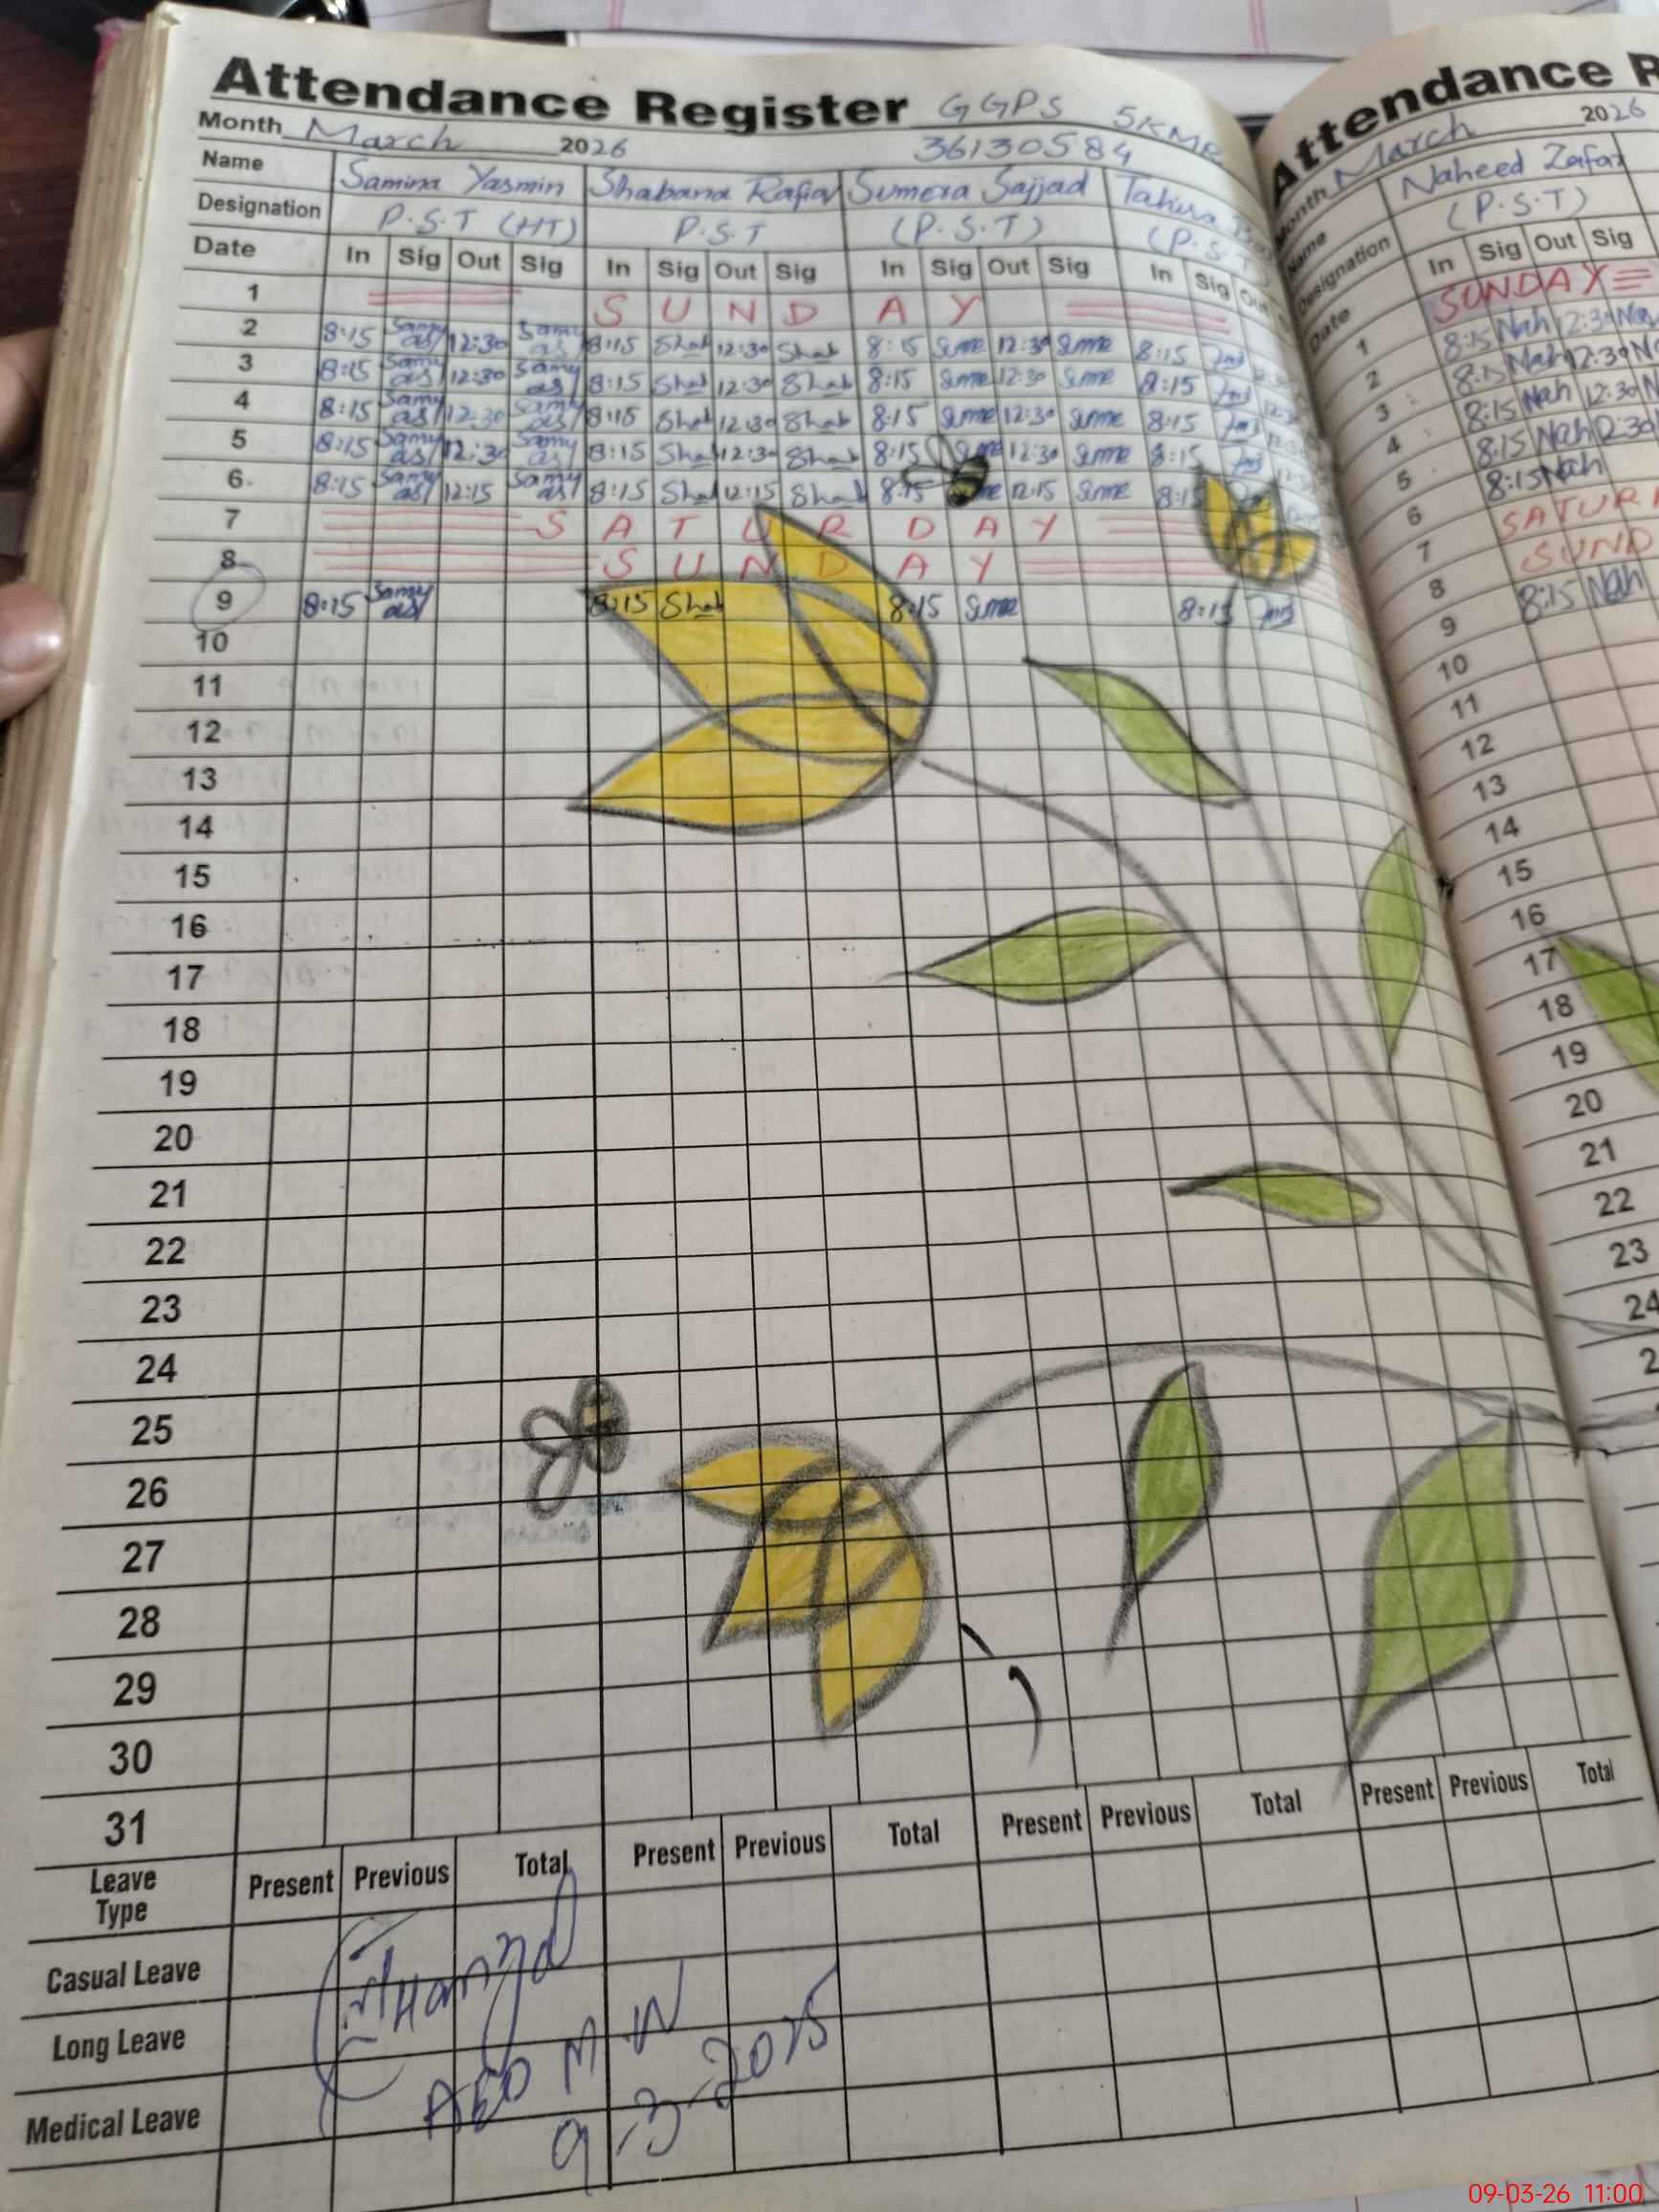 Attendance Register GGPS 5KMR
Month March 2026 36130584
Name Samina Yasmin Shabana Rafia Sumera Sajjad Tahira
Designation P.S.T (HT) P.S.T (P.S.T) (P.S.T)
Date In Sig Out Sig In Sig Out Sig In Sig Out Sig In Sig Out
1 SUNDAY
2 8:15 Samy as 12:30 Samy as 8:15 Shab 12:30 Shab 8:15 Sume 12:30 Sume 8:15
3 8:15 Samy as 12:30 Samy as 8:15 Shab 12:30 Shab 8:15 Sume 12:30 Sume 8:15
4 8:15 Samy as 12:30 Samy as 8:15 Shab 12:30 Shab 8:15 Sume 12:30 Sume 8:15
5 8:15 Samy as 12:30 Samy as 8:15 Shab 12:30 Shab 8:15 Sume 12:30 Sume 8:15
6 8:15 Samy as 12:15 Samy as 8:15 Shab 12:15 Shab 8:15 12:15 Sume 8:15
7 SATURDAY
8 SUNDAY
9 8:15 Samy as 8:15 Shab 8:15 Sume 8:15
10
11
12
13
14
15
16
17
18
19
20
21
22
23
24
25
26
27
28
29
30
31
Leave Type Present Previous Total Present Previous Total Present Previous Total Present Previous Total
Casual Leave
Long Leave
Medical Leave
AEO M.W
9-3-2025
Attendance R
Month March 2026
Name Naheed Zafar
Designation (P.S.T)
Date In Sig Out Sig
1 SUNDAY
2 8:15 Nah 12:30
3 8:15 Nah 12:30
4 8:15 Nah 12:30
5 8:15 Nah 12:30
6 8:15 Nah
7 SATUR
8 SUND
9 8:15 Nah
10
11
12
13
14
15
16
17
18
19
20
21
22
23
24
09-03-26 11:00